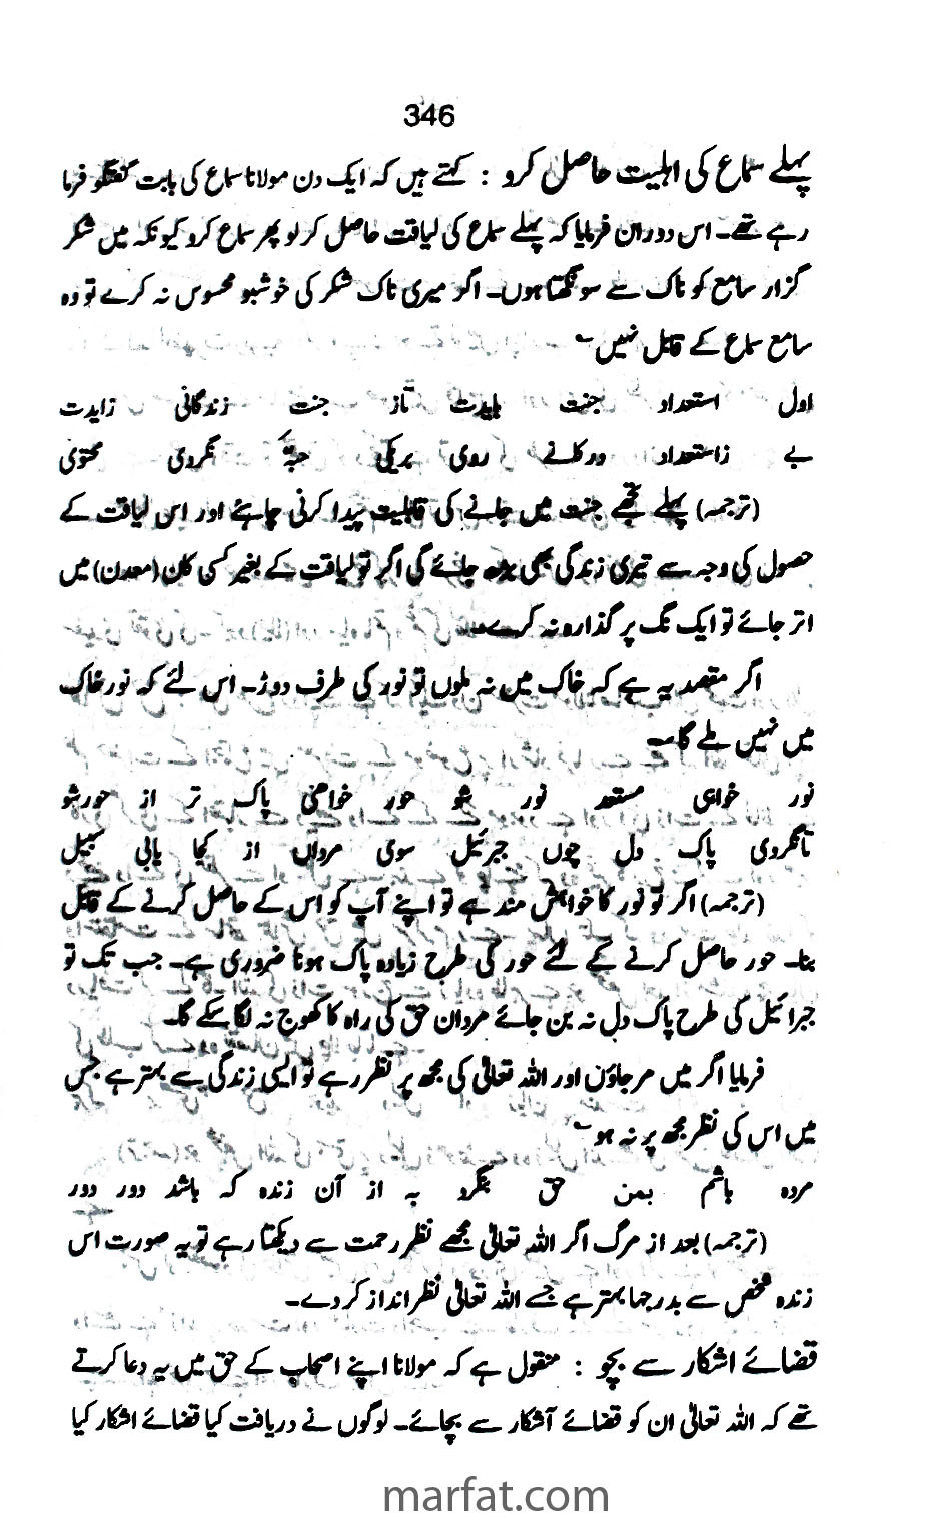 346
پہلے سماع کی اہلیت حاصل کرو : کہتے ہیں کہ ایک دن مولانا سماع کی بابت گفتگو فرما
رہے تھے۔ اس دوران فرمایا کہ پہلے سماع کی لیاقت حاصل کر لو پھر سماع کرو کیونکہ میں شکر
گزار سامع کو ناک سے سونگھتا ہوں۔ اگر میری ناک شکر کی خوشبو محسوس نہ کرے تو وہ
سامع سماع کے قابل نہیں
اول استعداد جنت بایدت تاز جنت زندگانی زایدت
بے زاستعداد درکانے روی بریکی حبہ نگردی محتوی
(ترجمہ) پہلے تجھے جنت میں جانے کی قابلیت پیدا کرنی چاہئے اور اس لیاقت کے
حصول کی وجہ سے تیری زندگی بھی بڑھ جائے گی اگر تو لیاقت کے بغیر کسی کان (معدن) میں
اتر جائے تو ایک نگ پر گذارہ نہ کرے۔
اگر مقصد یہ ہے کہ خاک میں نہ ملوں تو نور کی طرف دوڑ۔ اس لئے کہ نور خاک
میں نہیں ملے گا۔
نور خواہی مستعد نور شو حور خواہی پاک تر از حورشو
تانگردی پاک دل چوں جبرئیل سوی مرداں از کجا یابی سبیل
(ترجمہ) اگر تو نور کا خواہش مند ہے تو اپنے آپ کو اس کے حاصل کرنے کے قابل
بنا۔ حور حاصل کرنے کے لئے حور کی طرح زیادہ پاک ہونا ضروری ہے۔ جب تک تو
جبرائیل کی طرح پاک دل نہ بن جائے مردان حق کی راہ کا کھوج نہ لگا سکے گا۔
فرمایا اگر میں مر جاؤں اور اللہ تعالیٰ کی مجھ پر نظر رہے تو ایسی زندگی سے بہتر ہے جس
میں اس کی نظر مجھ پر نہ ہو
مردہ باشم بمن حق بنگرد بہ از آن زندہ کہ باشد دور دور
(ترجمہ) بعد از مرگ اگر اللہ تعالیٰ مجھے نظر رحمت سے دیکھتا رہے تو یہ صورت اس
زندہ شخص سے بدرجہا بہتر ہے جسے اللہ تعالیٰ نظر انداز کر دے۔
قضائے اشکار سے بچو : منقول ہے کہ مولانا اپنے اصحاب کے حق میں یہ دعا کرتے
تھے کہ اللہ تعالیٰ ان کو قضائے آشکار سے بچائے۔ لوگوں نے دریافت کیا قضائے اشکار کیا
marfat.com